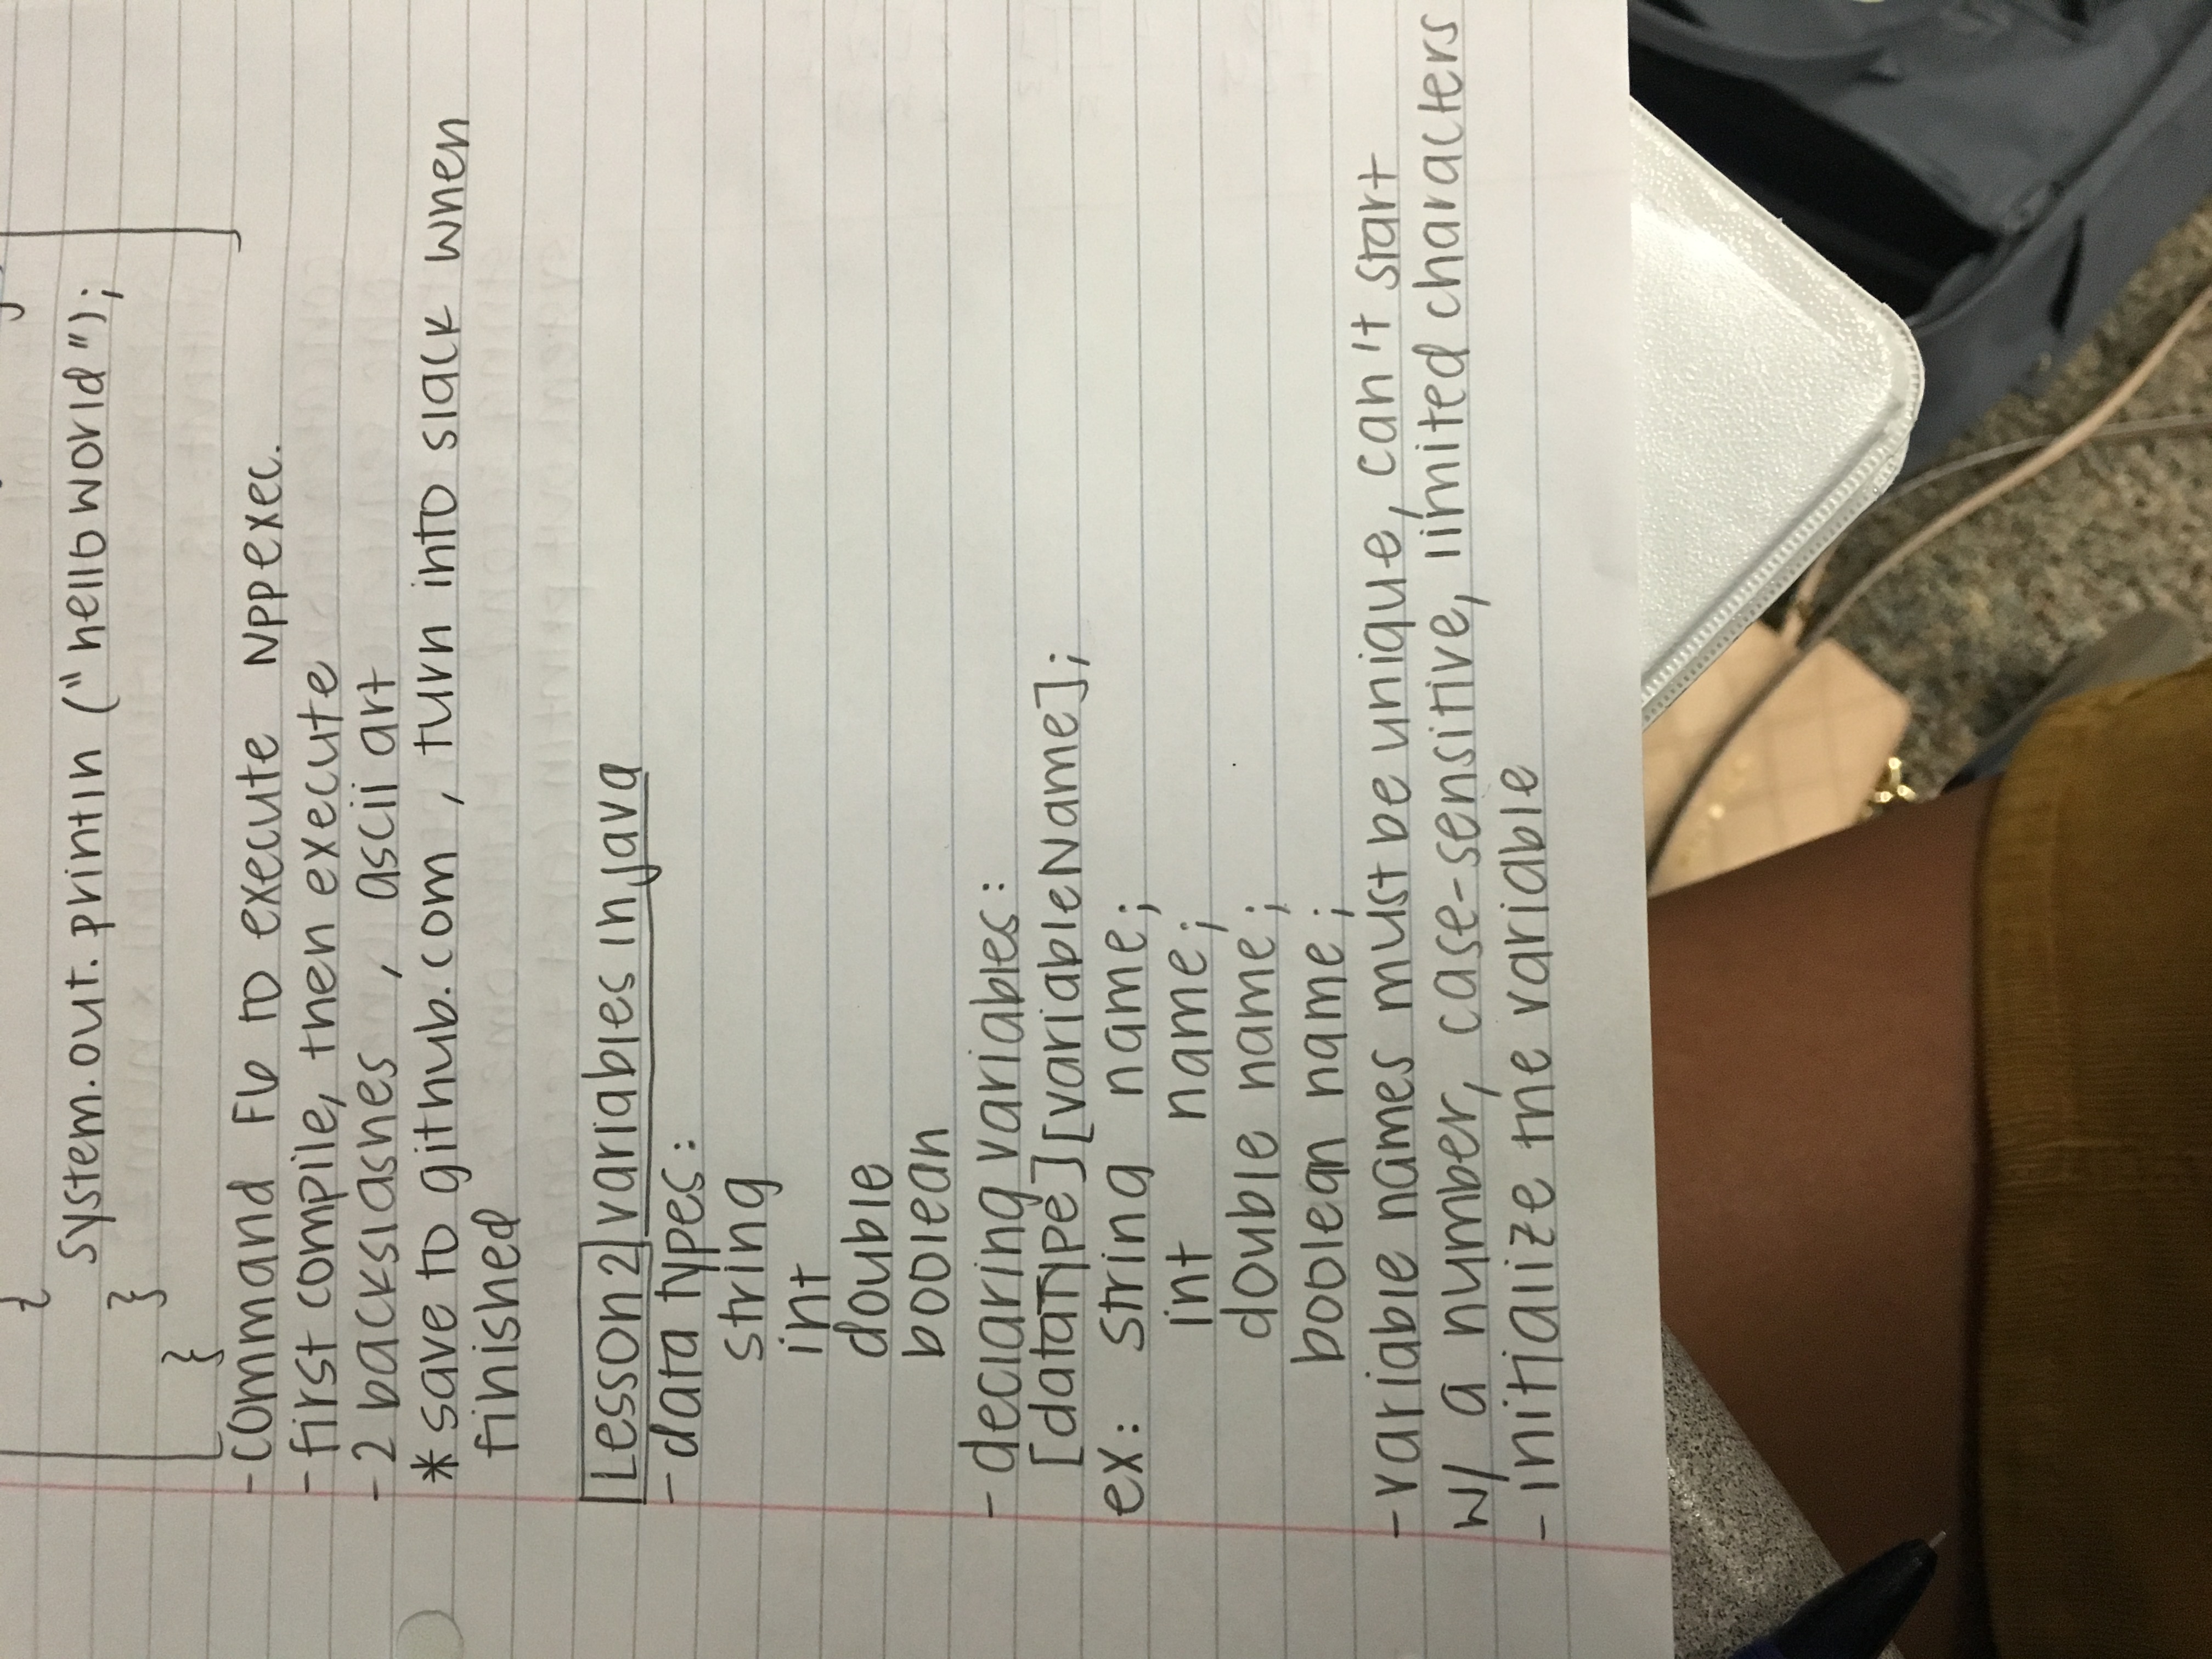 {
system.out.println ("hello world");
}
}
-command F6 to execute Nppexec.
-first compile, then execute
-2 backslashes , ascii art
* save to github.com , turn into slack when
finished
Lesson 2 variables in java
-data types:
string
int
double
boolean
-declaring variables:
[dataType][variableName];
ex: string name;
int name;
double name;
boolean name;
-variable names must be unique, can't start
w/ a number, case-sensitive, limited characters
-initialize the variable